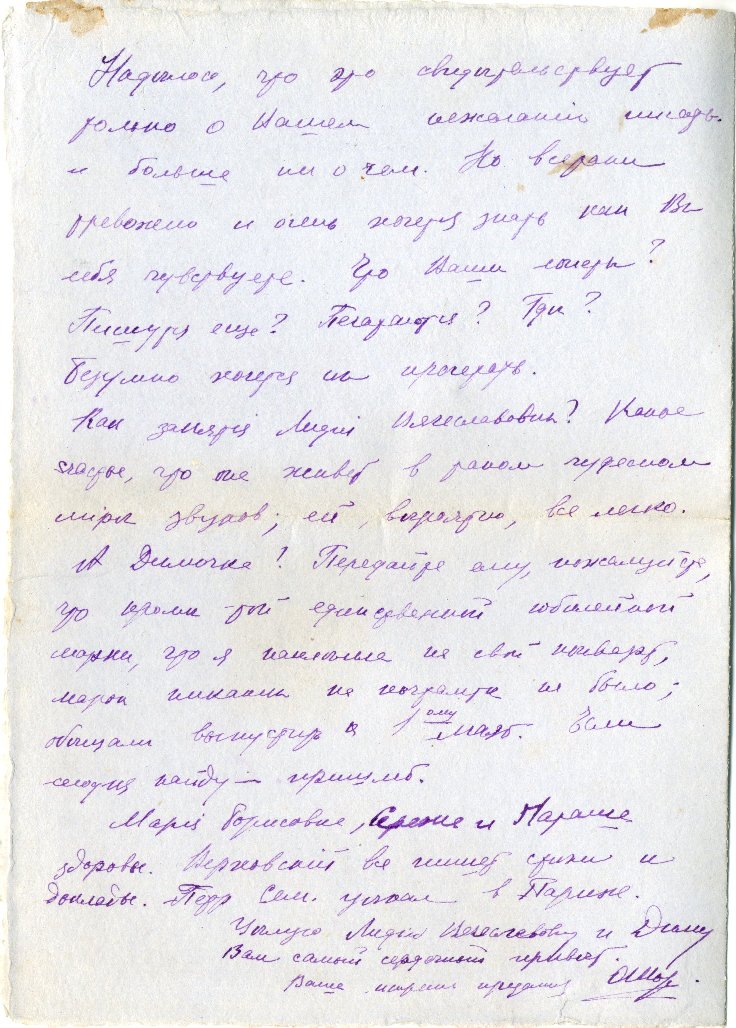 Надѣюсь, что это свидѣтельствует
только о Вашем нежеланiи писать
и больше ни о чем. Но всетаки
тревожно и очень хочется знать как Вы
себя чувствуете. Что Ваши сонеты?
Пишутся еще? Печатаются? Гдѣ?
Безумно хочется их прочитать.
Как занятiя Лидiи Вячеславовны? Какое
счастье, что она живет в таком чудесном
мiрѣ звуков; ей, вѣроятно, все легко.
А Димочка! Передайте ему, пожалуйста,
что кромѣ той единственной юбилейной
марки, что я наклеила на свой конверт,
марок никаких на почтамтѣ не было;
обѣщали выпустить к 1ому мая. Если
сегодня найду — пришлю.
Марiя Борисовна, Сережа и Параша
здоровы. Верховскiй все пишет стихи и
доклады. Петр Сем. уѣхал в Париж.
Цѣлую Лидiю Вячеславовну и Диму
Вам самый сердечный привѣт.
Ваша искренно преданная